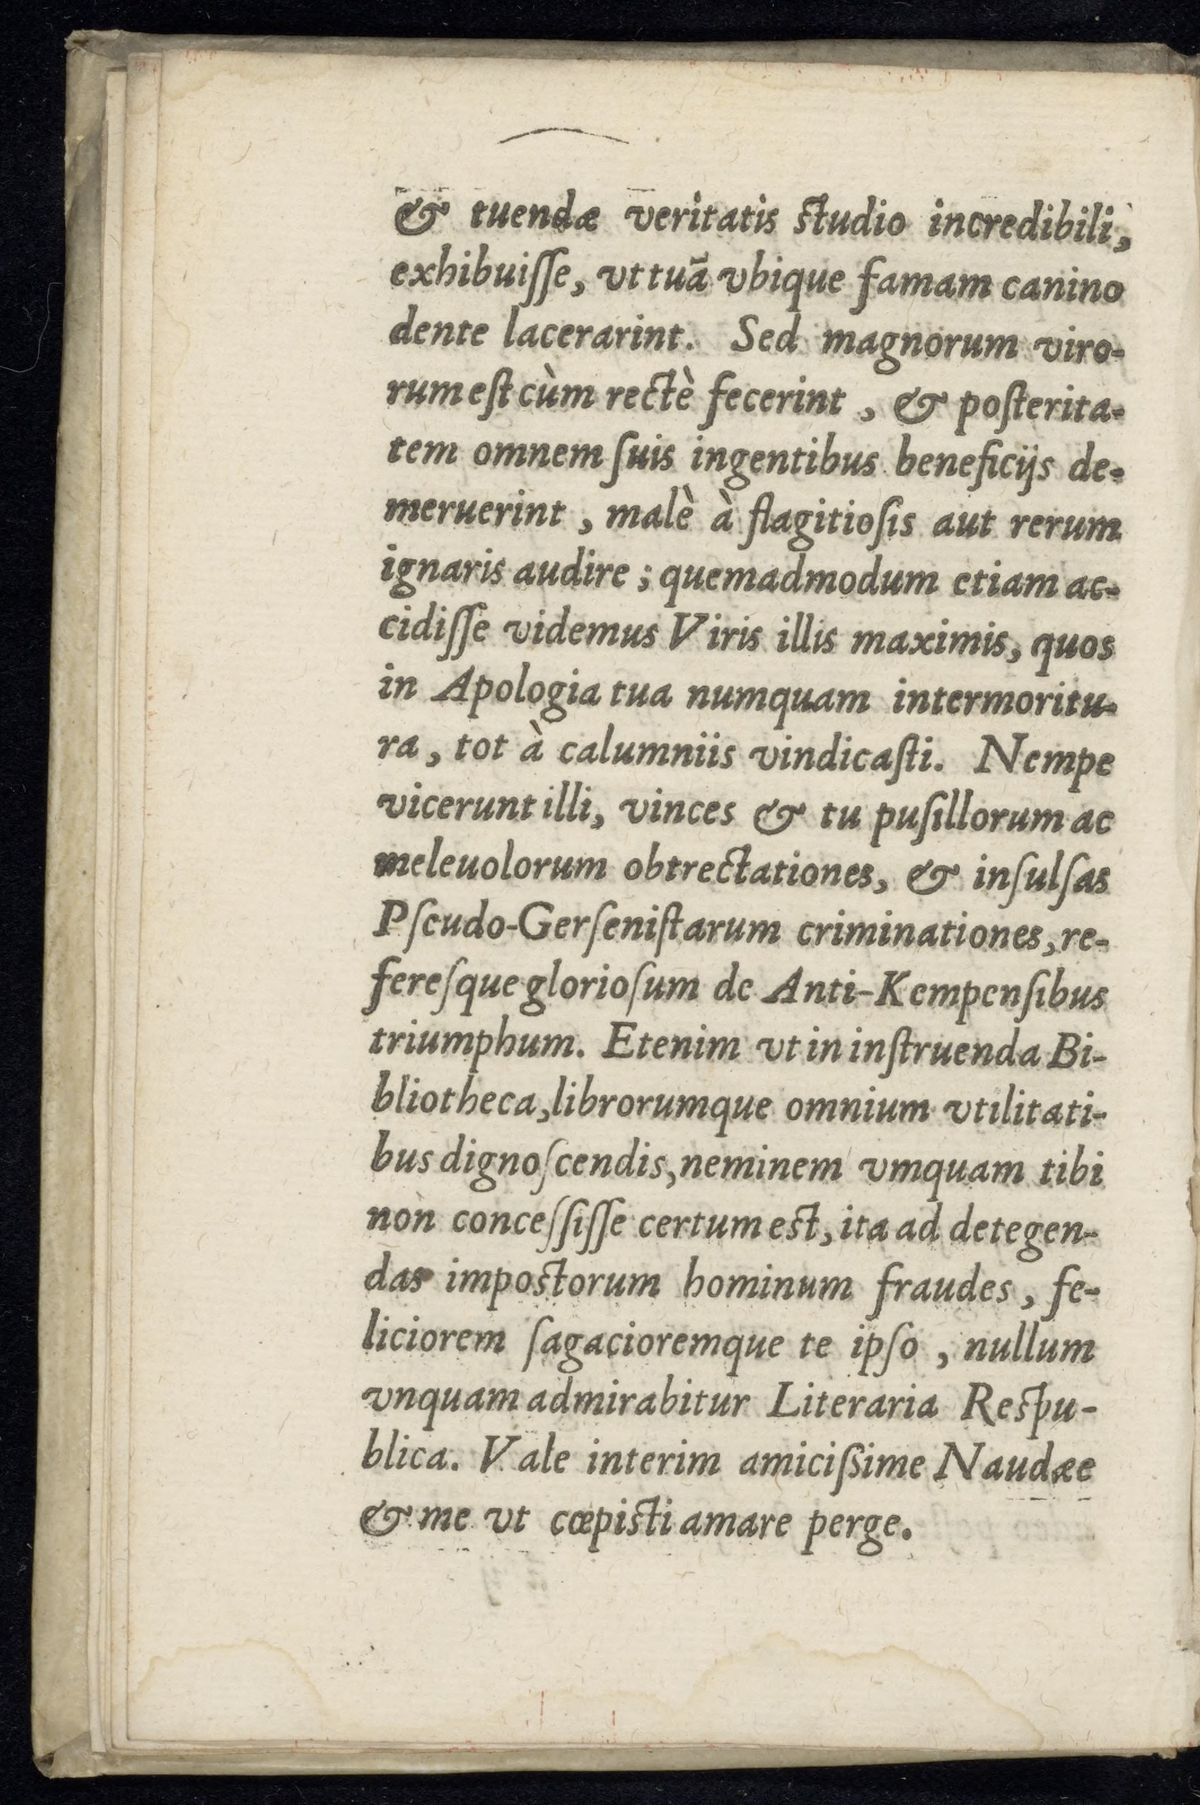 & tuendæ veritatis ſtudio incredibili,
exhibuiſſe, vt tuā vbique famam canino
dente lacerarint. Sed magnorum viro-
rum eſt cùm rectè fecerint, & poſterita-
tem omnem ſuis ingentibus beneficijs de-
meruerint, malè à flagitioſis aut rerum
ignaris audire; quemadmodum etiam ac-
cidiſſe videmus Viris illis maximis, quos
in Apologia tua numquam intermoritu-
ra, tot à calumniis vindicaſti. Nempe
vicerunt illi, vinces & tu puſillorum ac
meleuolorum obtrectationes, & inſulſas
Pſeudo-Gerſeniſtarum criminationes, re-
fereſque glorioſum de Anti-Kempenſibus
triumphum. Etenim vt in inſtruenda Bi-
bliotheca, librorumque omnium vtilitati-
bus dignoſcendis, neminem vmquam tibi
non conceſſiſſe certum eſt, ita ad detegen-
das impoſtorum hominum fraudes, fe-
liciorem ſagacioremque te ipſo, nullum
vnquam admirabitur Literaria Reſpu-
blica. Vale interim amiciſſime Naudæe
& me vt cœpiſti amare perge.